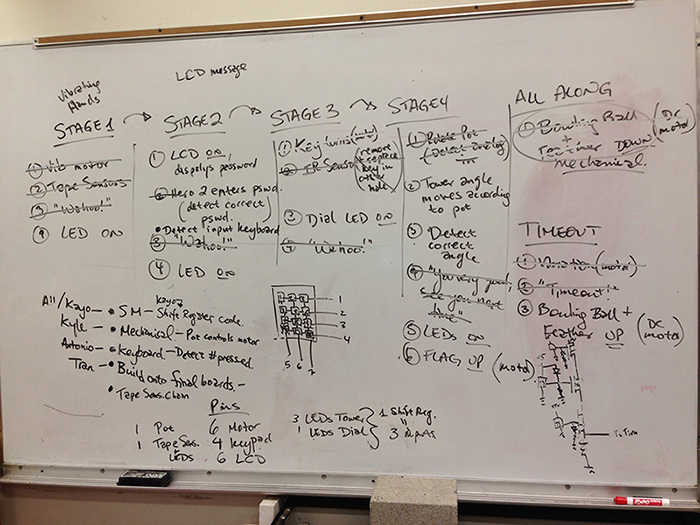 Vibrating
Hands
STAGE 1
1 Vib motor
2 Tape Sensors
3 "Wahoo!"
4 LED ON
LCD message
STAGE 2
1 LCD ON
displays password
2 Hero 2 enters pswd.
(detect correct
pswd.
• Detect input keyboard
3 "Wahoo!"
4 LED ON
STAGE 3
1. Key
2 IR Sensor
(remove
+ replace
key in
other
hole
3 Dial LED ON
4 "Wahoo!"
STAGE 4
1 Rotate Pot
(Detect analog)
2 Tower angle
moves according
to pot
3 Detect
correct
angle
4 "You very good,
see you next
5 LEDs ON
6 FLAG UP (motor)
ALL ALONG
1 Bowling Ball
+
DOWN
mechanical.
(DC
motor)
TIMEOUT
1 (motor)
2 "Timeout!"
3 Bowling Ball +
Feather UP
(DC
motor)
All/Kayo
Kyle
Antonio
Tran
• SM - Shift Register code.
• Mechanical - Pot controls motor
• Keyboard - Detect # pressed.
• Build onto final boards -
• Tape Sens.
1
2
3
4
5 6 7
Pins
1 Pot 6 Motor
1 Tape Sens. 4 Keypad
LEDs 6 LCD
3 LEDs Tower
1 LEDs Dial
1 Shift Reg.
3
EXPO